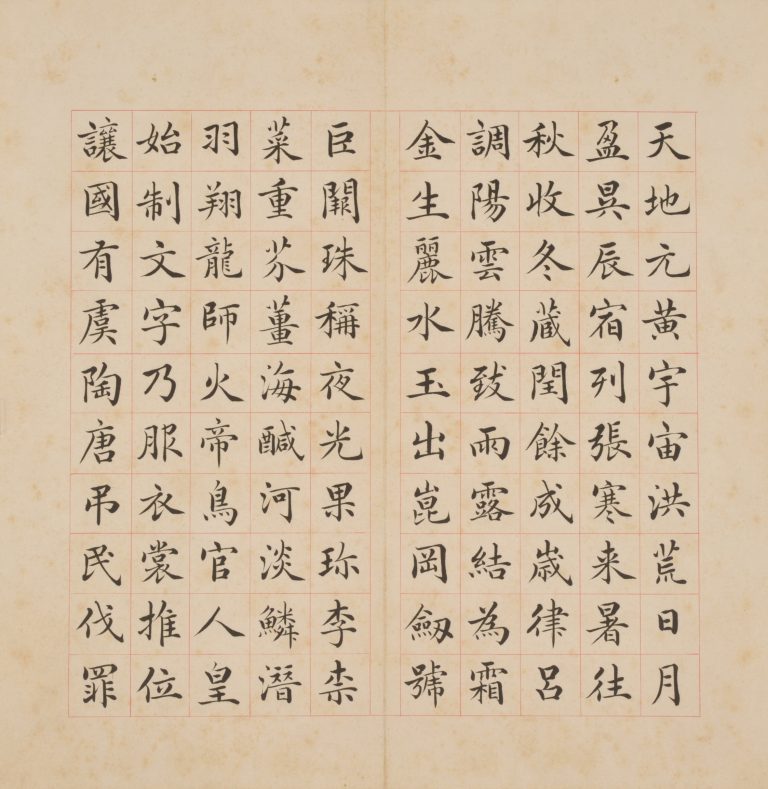 天地元黄宇宙洪荒日月
盈昃辰宿列張寒来暑往
秋收冬蔵閏餘成歲律呂
調陽雲騰致雨露結為霜
金生麗水玉出崑岡劒號
巨闕珠稱夜光果珎李柰
菜重芥薑海鹹河淡鱗潛
羽翔龍師火帝鳥官人皇
始制文字乃服衣裳推位
讓國有虞陶唐吊民伐罪